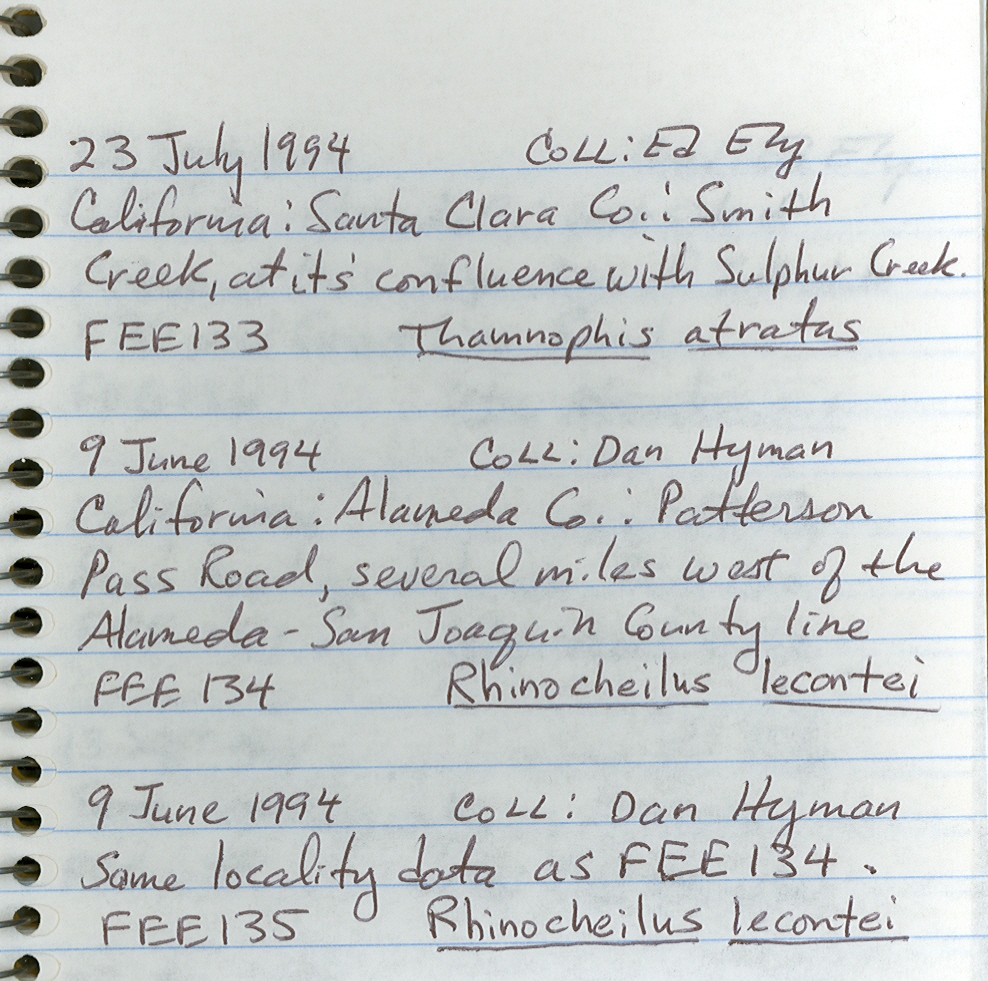 23 July 1994 Coll: Ed Ely
California: Santa Clara Co.: Smith
Creek, at it's confluence with Sulphur Creek.
FEE 133 Thamnophis atratus
9 June 1994 Coll: Dan Hyman
California: Alameda Co.: Patterson
Pass Road, several miles west of the
Alameda - San Joaquin County line
FEE 134 Rhinocheilus lecontei
9 June 1994 Coll: Dan Hyman
Same locality data as FEE 134.
FEE 135 Rhinocheilus lecontei